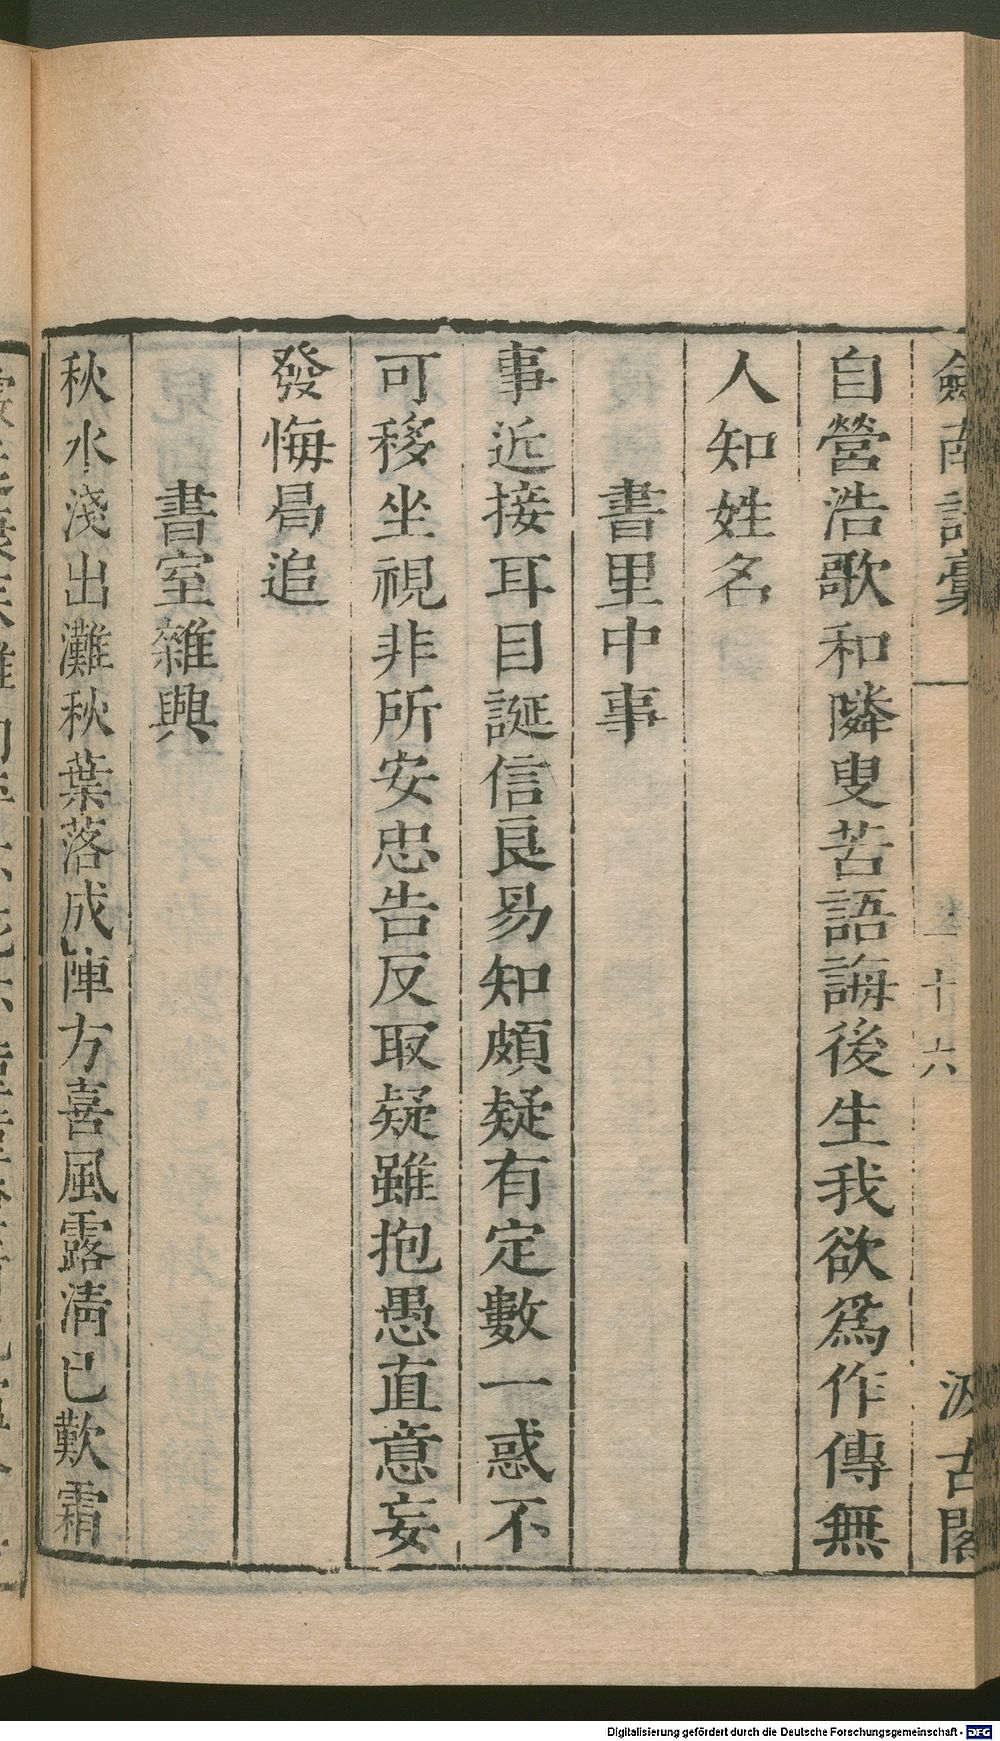 劒南詩稾
十六
汲古閣
自營浩歌和隣叟苦語誨後生我欲爲作傳無
人知姓名
書里中事
事近接耳目誕信良易知頗疑有定數一惑不
可移坐視非所安忠告反取疑雖抱愚直意妄
發悔曷追
書室雜興
秋水淺出灘秋葉落成陣方喜風露淸已歎霜
Digitalisierung gefördert durch die Deutsche Forschungsgemeinschaft - DFG